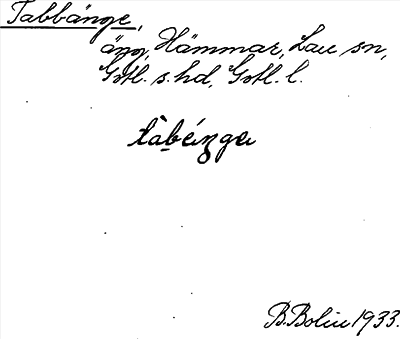 Tabbänge,
äng, Hämmar, Lau sn,
Gotl. s. hd, Gotl. l.
tàbǽnga
B. Bolin 1933.